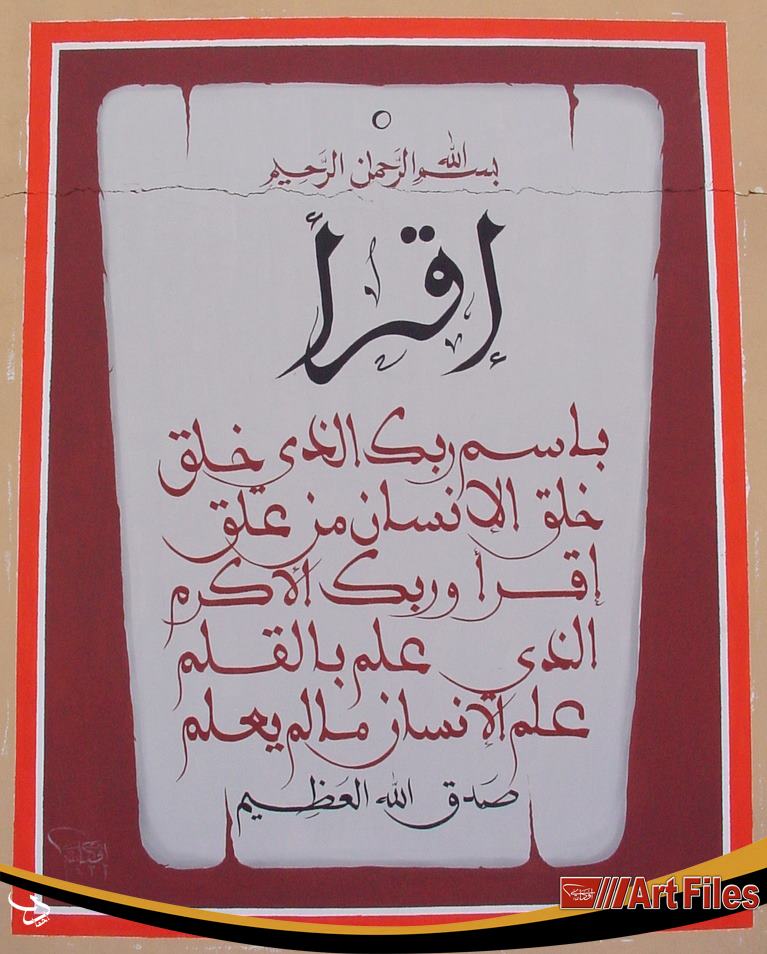 بسم الله الرحمن الرحيم
إقرأ
باسم ربك الذي خلق
خلق الإنسان من علق
إقرأ وربك الأكرم
الذي علم بالقلم
علم الإنسان مالم يعلم
صَدق الله العَظِيم
Art Files